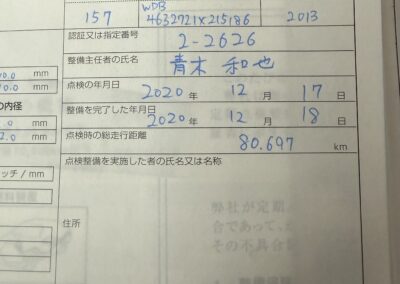 157 WDB 4632721X215186 2013
認証又は指定番号
2-2626
整備主任者の氏名
青木 和也
点検の年月日
2020年 12月 17日
整備を完了した年月日
2020年 12月 18日
点検時の総走行距離
80.697 km
点検整備を実施した者の氏名又は名称
住所
mm
mm
の内径
mm
2.0 mm
ッチ/mm
弊社が定期
合であって、
その不具合